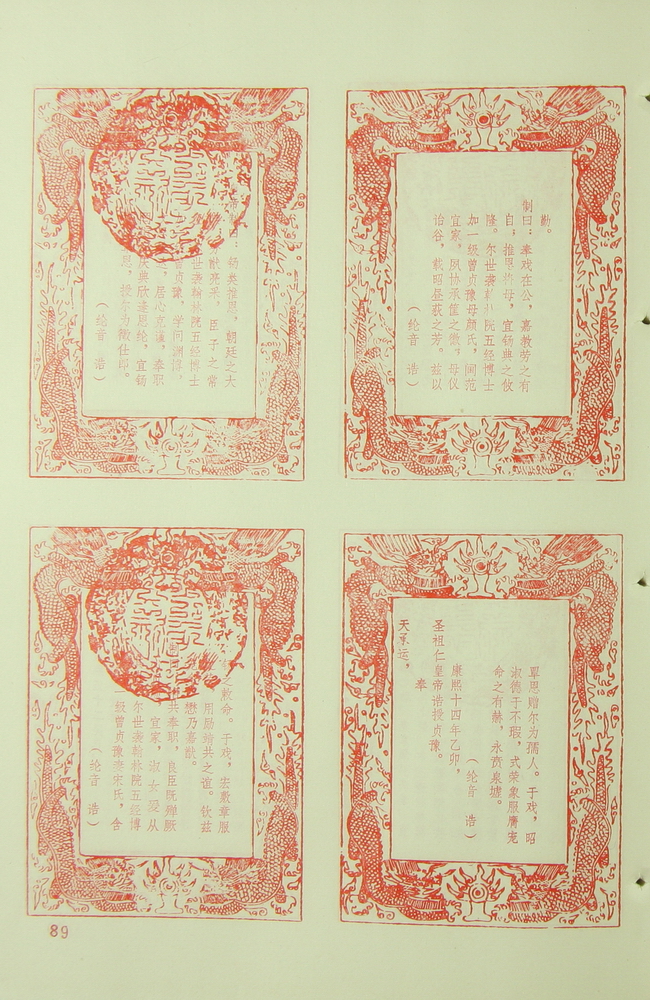 勤。
制曰：奉戏在公，嘉教劳之有
自；推恩将母，宜锡典之攸
隆。尔世袭翰林院五经博士
加一级曾贞豫母顾氏，阃范
宜家，夙协承筐之微，母仪
诒谷，载昭昼荻之芳。兹以
（纶音 诰）
制曰：锡类推恩，朝廷之大
猷亮采，臣子之常
世袭翰林院五经博士
曾贞豫，学问渊博，
，居心克谨，奉职
典欣逢恩纶，宜锡
恩，授尔为徵仕郎。
（纶音 诰）
覃恩赠尔为孺人。于戏，昭
淑德于不瑕，式荣象服膺宠
命之有赫，永贲泉墟。
（纶音 诰）
康熙十四年乙卯，
圣祖仁皇帝诰授贞豫。
奉
天承运，
之敕命。于戏，宏敷章服
用励靖共之谊。钦兹
懋乃嘉猷。
共奉职，良臣既殚厥
宜家，淑女爰从
尔世袭翰林院五经博
级曾贞豫妻宋氏，含
（纶音 诰）
89